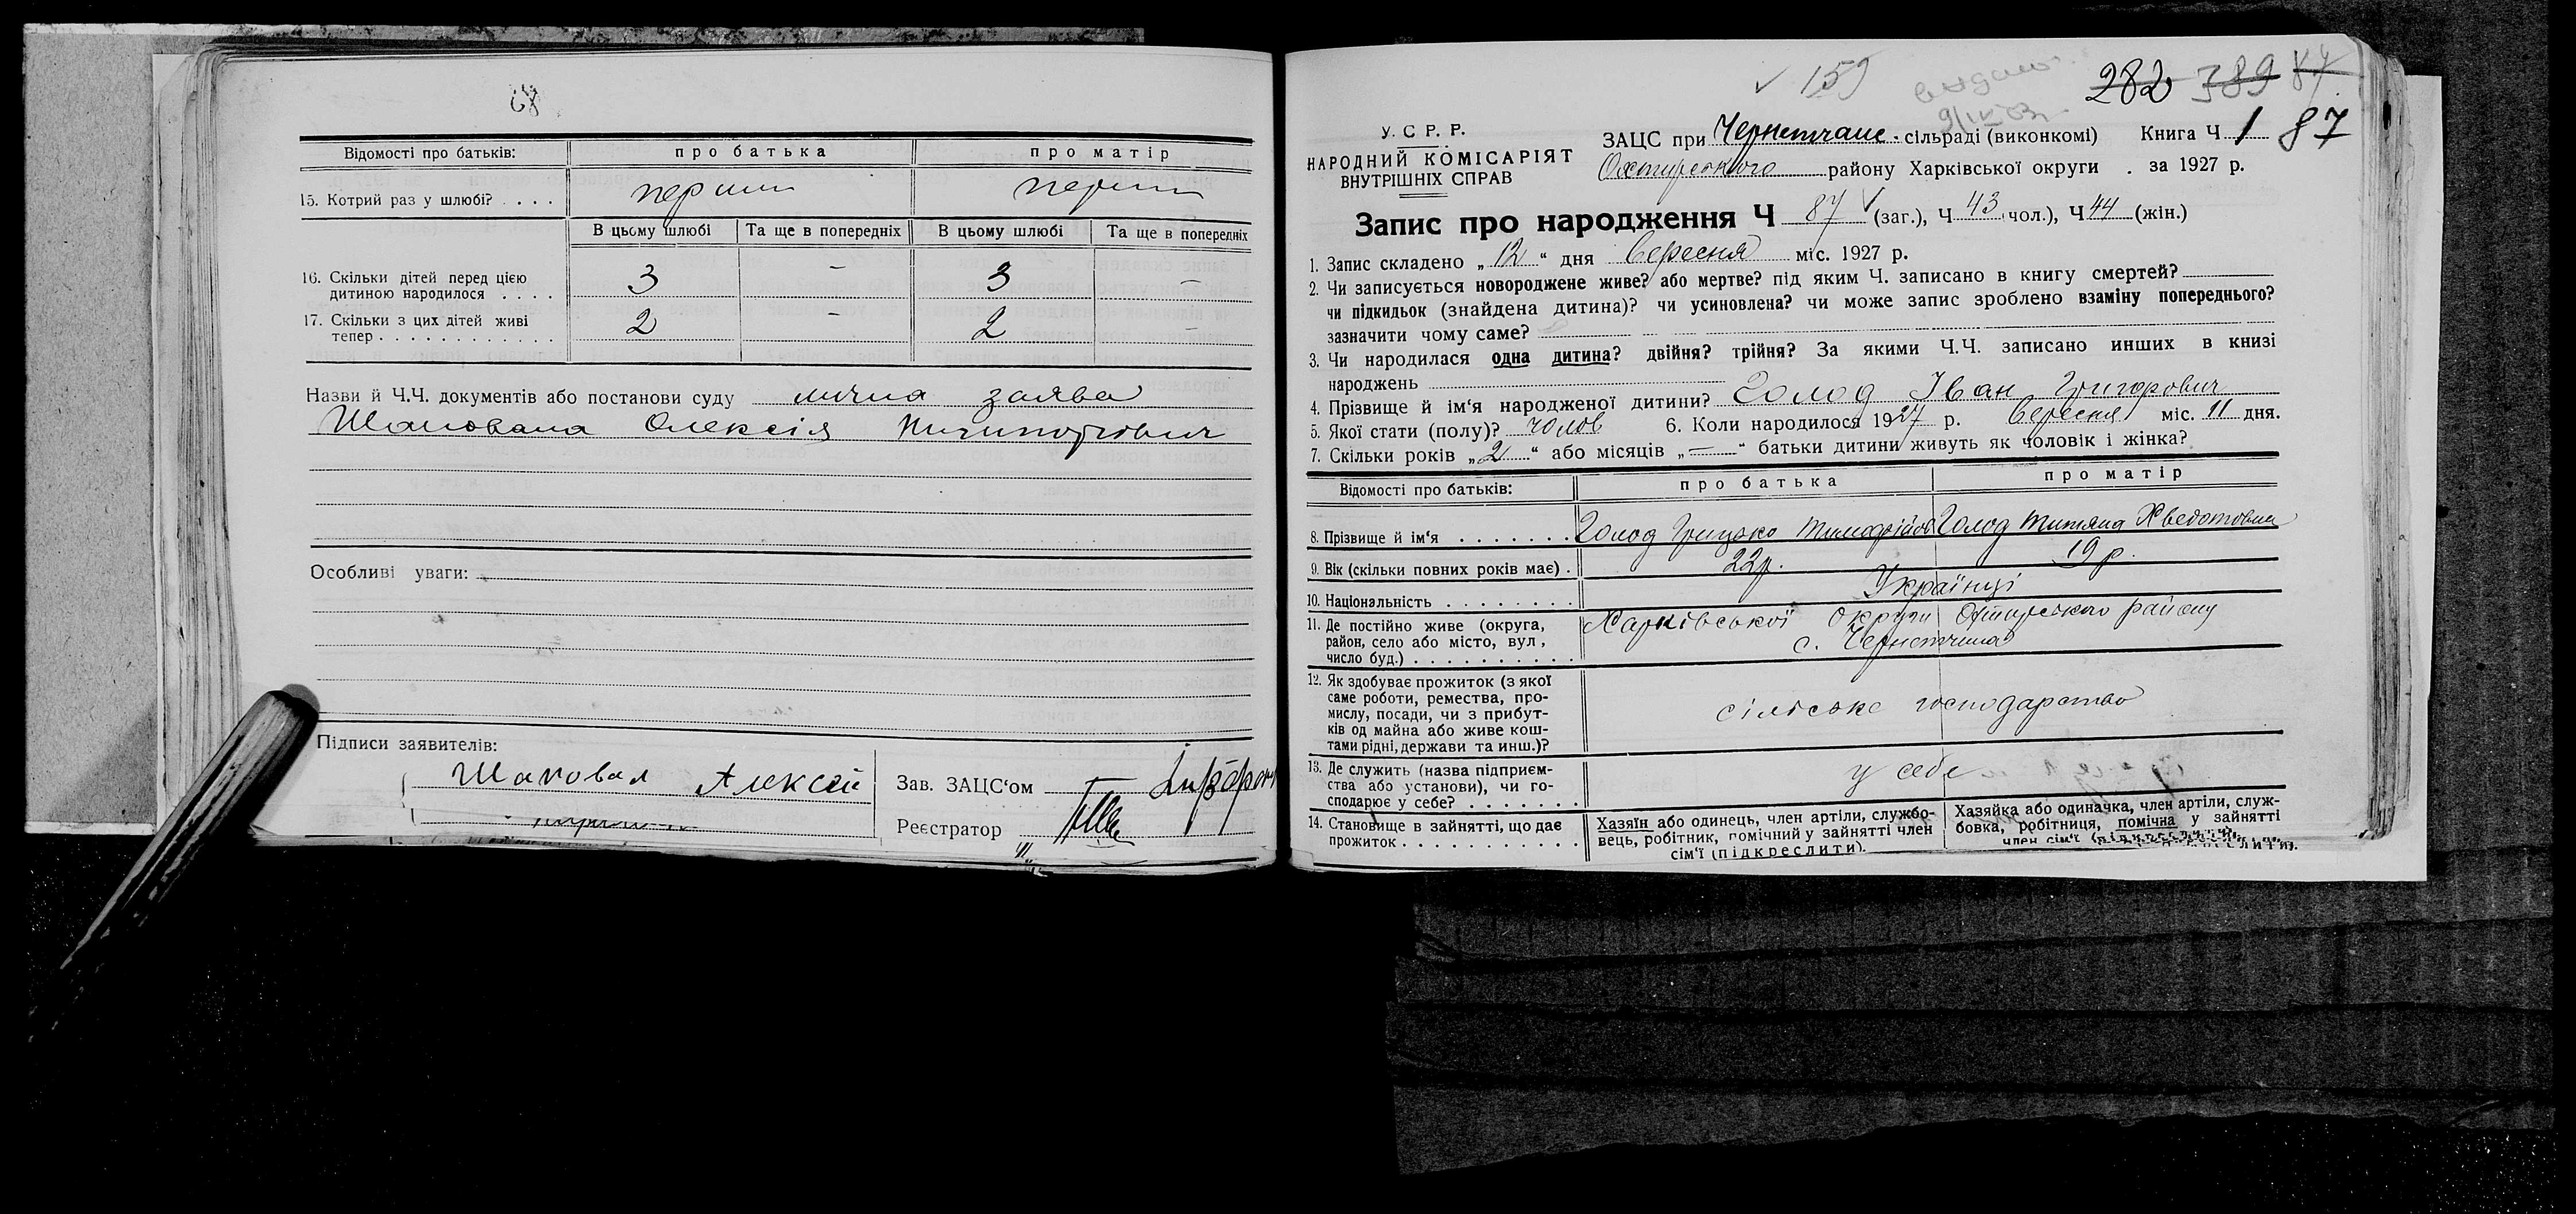 68
Відомості про батьків: про батька про матір
15. Котрий раз у шлюбі? . . . . перший перший
В цьому шлюбі Та ще в попередніх В цьому шлюбі Та ще в попередніх
16. Скільки дітей перед цією
дитиною народилося . . . . 3 - 3 -
17. Скільки з цих дітей живі
тепер . . . . . . . . . . . . 2 - 2 -
Назви й Ч.Ч. документів або постанови суду лична заява
Шаповала Олексія
Особливі уваги:
Підписи заявителів:
Шаповал Алексей
Зав. ЗАЦС'ом
Реєстратор
✓ 159 282 389 87
У. С. Р. Р.
НАРОДНИЙ КОМІСАРІЯТ
ВНУТРІШНІХ СПРАВ
ЗАЦС при Чернетчане. сільраді (виконкомі) Книга Ч 1 87
Охтирського району Харківської округи . за 1927 р.
Запис про народження Ч 87 ✓ (заг.), Ч 43 чол.), Ч 44 (жін.)
1. Запис складено „ 12 “ дня Вересня міс. 1927 р.
2. Чи записується новороджене живе? або мертве? під яким Ч. записано в книгу смертей?
чи підкидьок (знайдена дитина)? чи усиновлена? чи може запис зроблено взаміну попереднього?
зазначити чому саме?
3. Чи народилася одна дитина? двійня? трійня? За якими Ч.Ч. записано инших в книзі
народжень
4. Прізвище й ім'я народженої дитини? Голод Іван Григорович
5. Якої стати (полу)? чолов 6. Коли народилося 1927 р. Вересня міс. 11 дня.
7. Скільки років „ 2 “ або місяців „ — “ батьки дитини живуть як чоловік і жінка?
Відомості про батьків: про батька про матір
8. Прізвище й ім'я . . . . . . . Голод Грицько Тимофійов Голод Титяна Хведотовна
9. Вік (скільки повних років має) . 22р. 19 р.
10. Національність . . . . . . . . Українці
11. Де постійно живе (округа,
район, село або місто, вул.,
число буд.) . . . . . . . . . . . Харківської Округи Охтирського району
с. Чернетчина
12. Як здобуває прожиток (з якої
саме роботи, ремества, про-
мислу, посади, чи з прибут-
ків од майна або живе кош-
тами рідні, держави та инш.)? сільське господарство
13. Де служить (назва підприєм-
ства або установи), чи го-
сподарює у себе? . . . . . . . у себе
14. Становище в зайнятті, що дає
прожиток . . . . . . . . . . .
Хазяїн або одинець, член артіли, службо-
вець, робітник, помічний у зайнятті член
сім'ї (підкреслити).
Хазяйка або одиначка, член артіли, служ-
бовка, робітниця, помічна у зайнятті
член сім'ї (підкреслити).